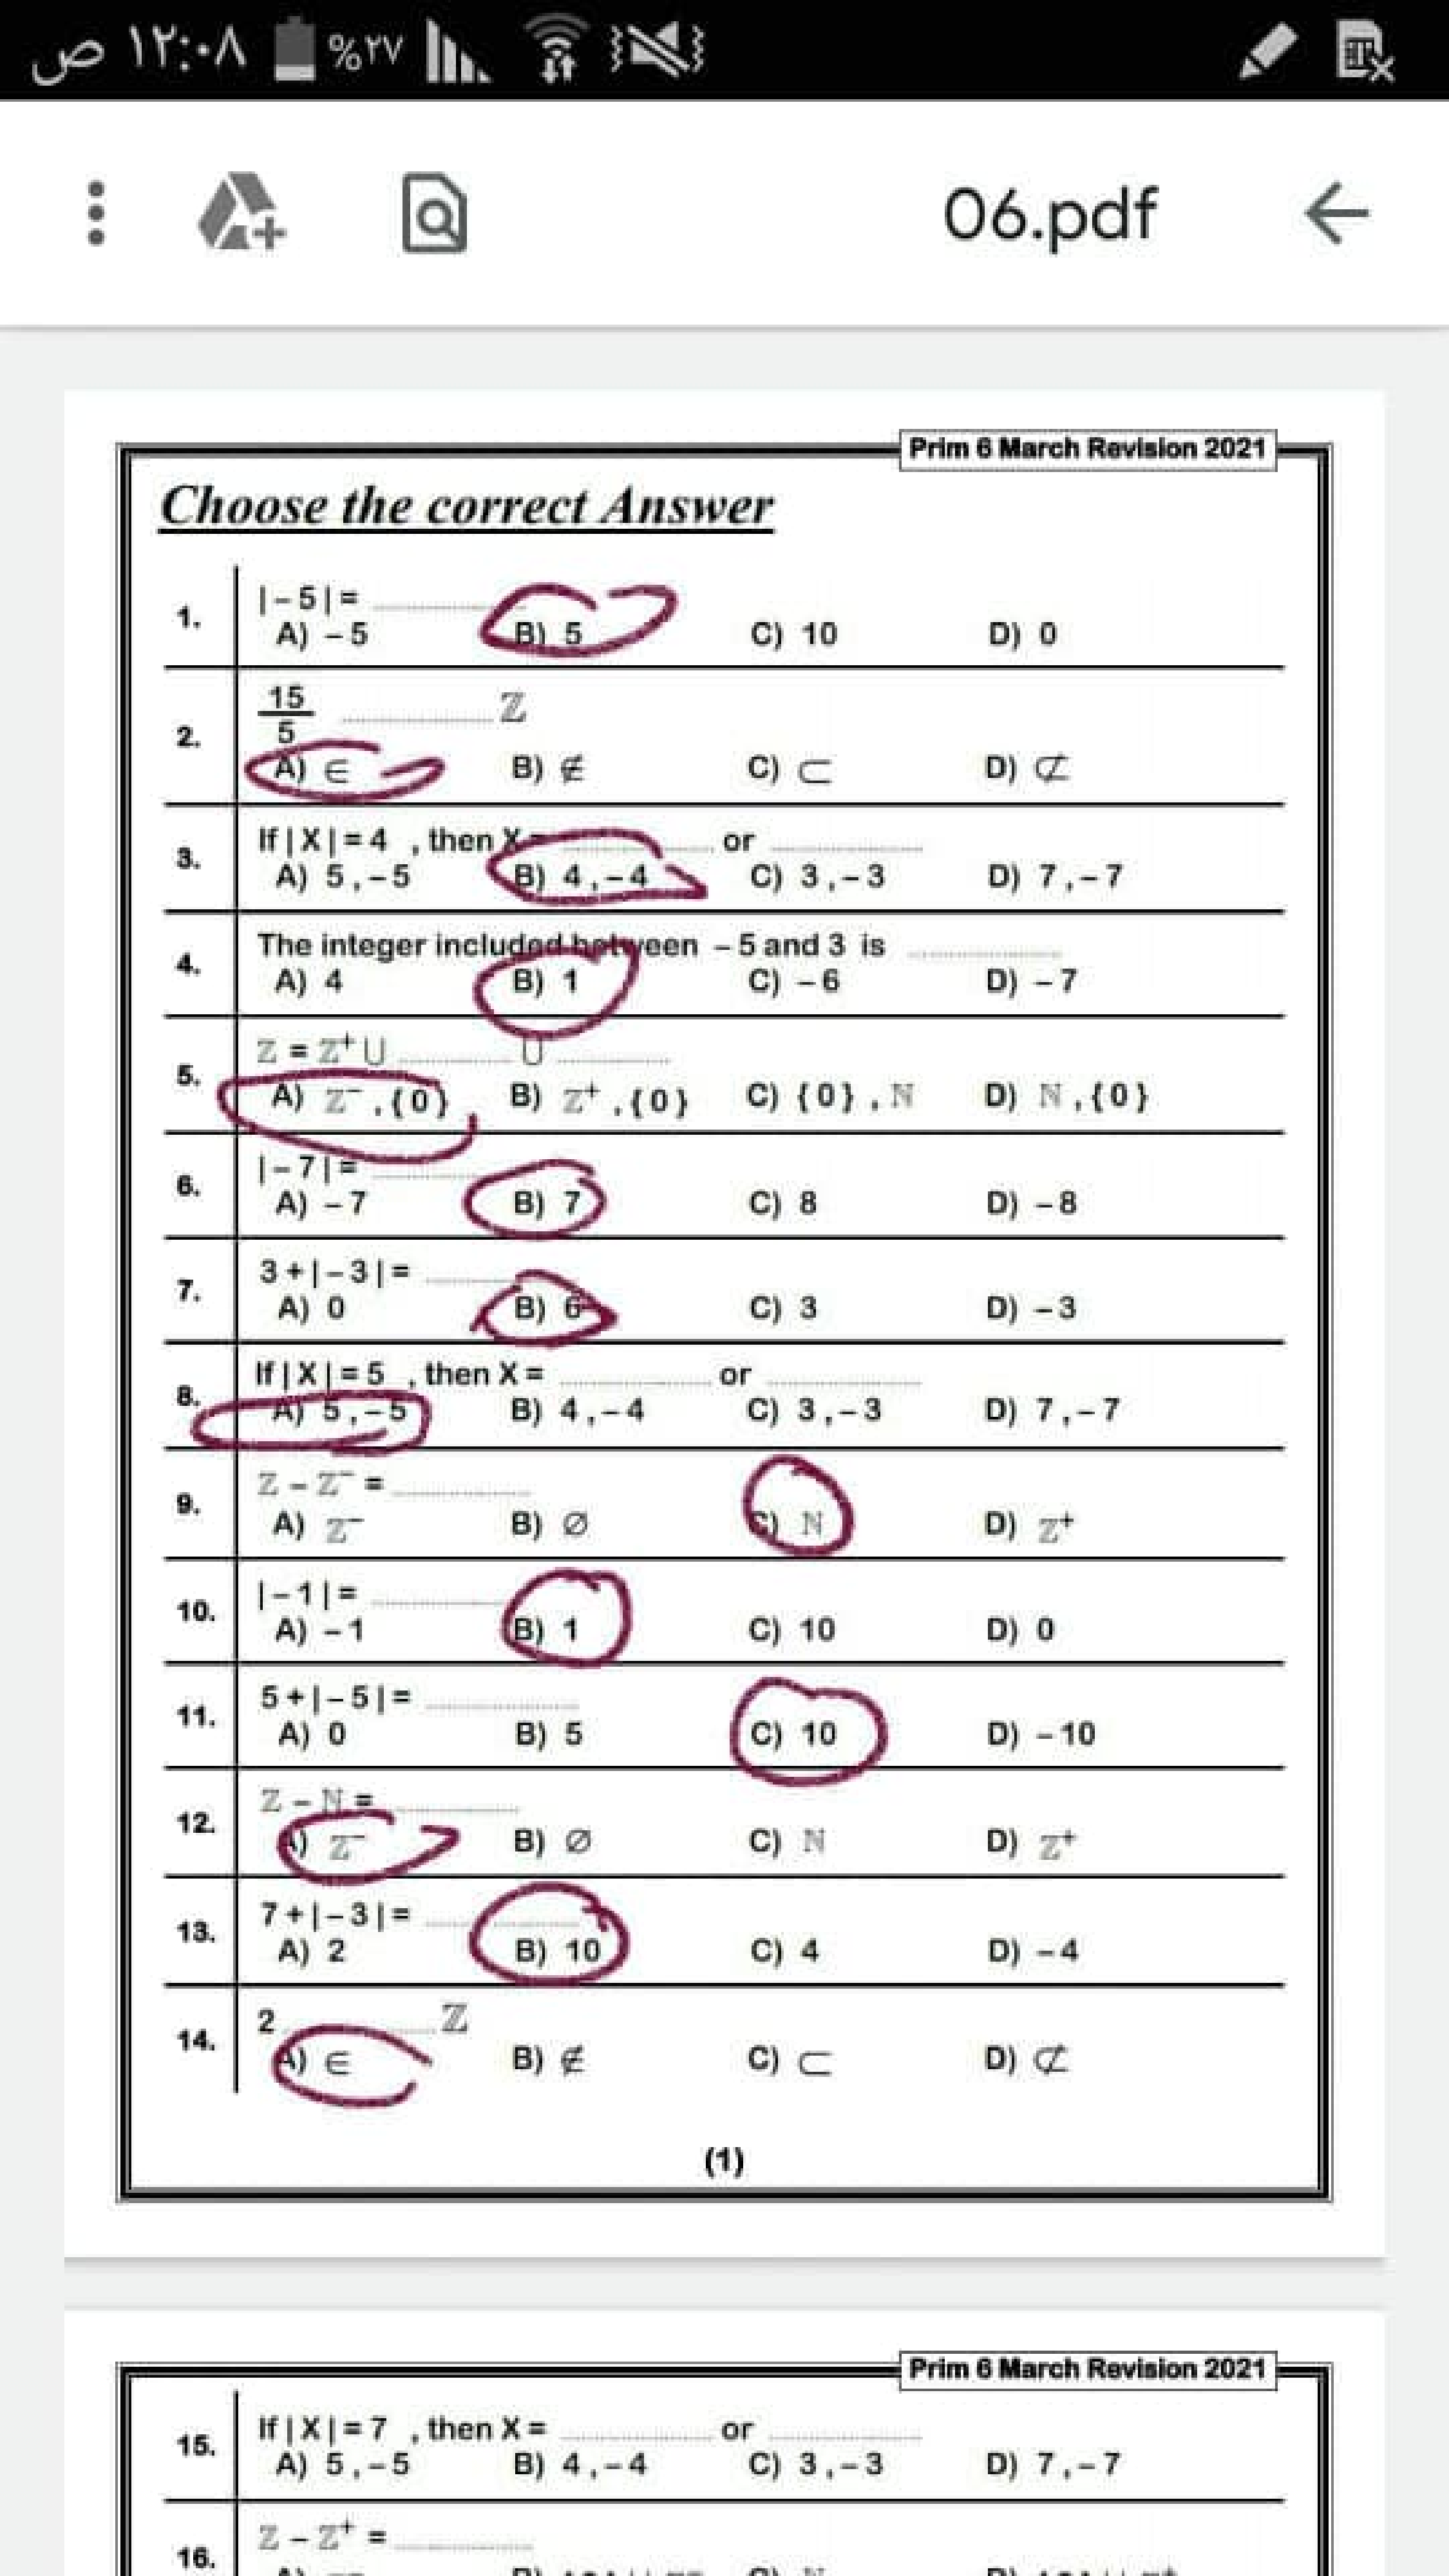 ١٢:٠٨ ص %٢٧
06.pdf
Prim 6 March Revision 2021
Choose the correct Answer
1. | – 5 | = ....................
A) – 5 B) 5 C) 10 D) 0
2. 15/5 .................... ℤ
A) ∈ B) ∉ C) ⊂ D) ⊄
3. If | X | = 4 , then X = .................... or ....................
A) 5 , – 5 B) 4 , – 4 C) 3 , – 3 D) 7 , – 7
4. The integer included between – 5 and 3 is ....................
A) 4 B) 1 C) – 6 D) – 7
5. ℤ = ℤ⁺ ∪ .................... ∪ ....................
A) ℤ⁻ , {0} B) ℤ⁺ , {0} C) {0} , ℕ D) ℕ , {0}
6. | – 7 | = ....................
A) – 7 B) 7 C) 8 D) – 8
7. 3 + | – 3 | = ....................
A) 0 B) 6 C) 3 D) – 3
8. If | X | = 5 , then X = .................... or ....................
A) 5 , – 5 B) 4 , – 4 C) 3 , – 3 D) 7 , – 7
9. ℤ – ℤ⁻ = ....................
A) ℤ⁻ B) ∅ C) ℕ D) ℤ⁺
10. | – 1 | = ....................
A) – 1 B) 1 C) 10 D) 0
11. 5 + | – 5 | = ....................
A) 0 B) 5 C) 10 D) – 10
12. ℤ – ℕ = ....................
A) ℤ⁻ B) ∅ C) ℕ D) ℤ⁺
13. 7 + | – 3 | = ....................
A) 2 B) 10 C) 4 D) – 4
14. 2 .................... ℤ
A) ∈ B) ∉ C) ⊂ D) ⊄
(1)
Prim 6 March Revision 2021
15. If | X | = 7 , then X = .................... or ....................
A) 5 , – 5 B) 4 , – 4 C) 3 , – 3 D) 7 , – 7
16. ℤ – ℤ⁺ = ....................